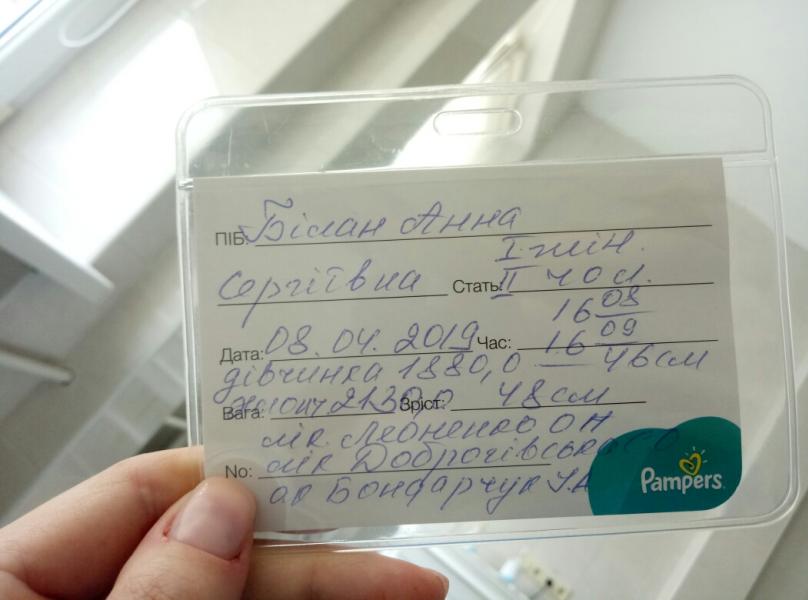 ПІБ: Білан Анна
I жін.
Сергіївна Стать: II чол.
16 08
Дата: 08.04.2019 Час: 16 09
дівчинка 1880,0 46см
Вага: хлопч 2130,0 Зріст: 48см
лік. Леоненко ОН
No: лік Доброчівська ЄО
ак Бондарчук У.А
Pampers